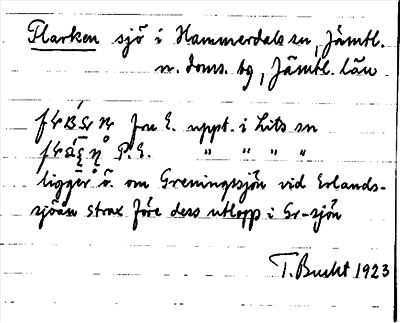 Flarken sjö i Hammerdals sn, Jämtl.
n. doms. tg, Jämtl. län
Jon E. uppt. i Lits sn
P. E. " " " "
ligger ö. om Greningsjön vid Erlands-
sjöån strax före dess utlopp i Gr-sjön
T. Bucht 1923